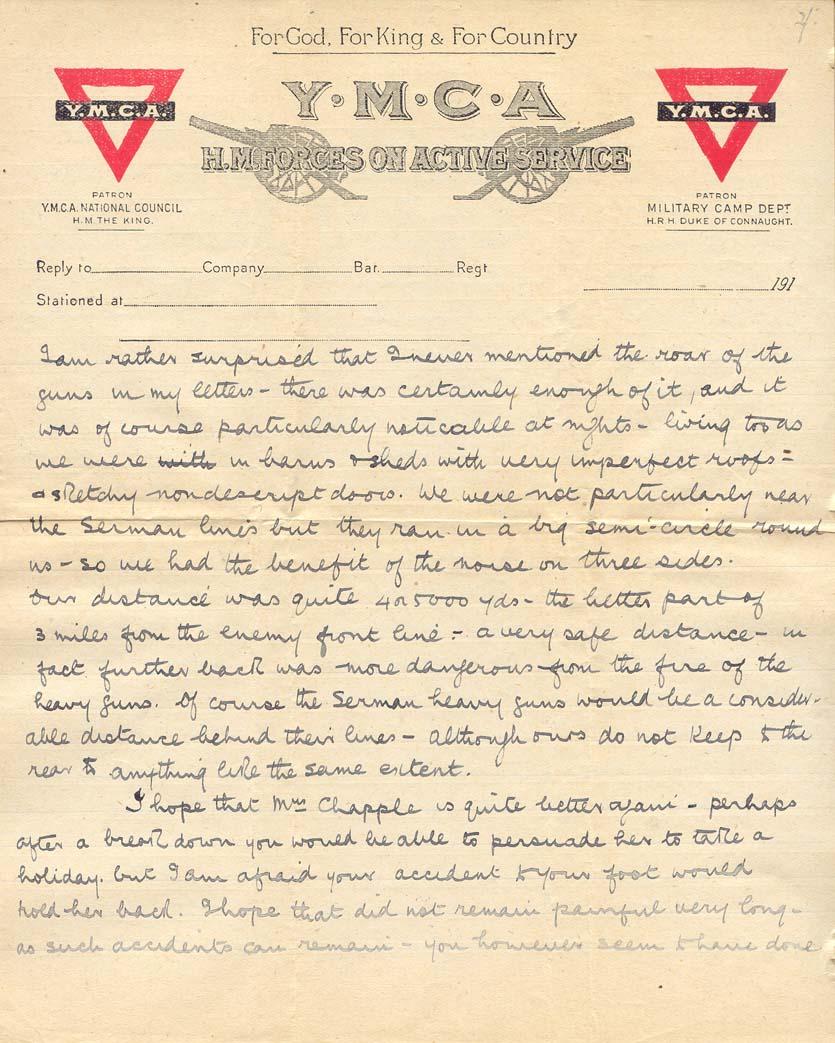 2/.
For God, For King & For Country
Y·M·C·A
H.M. FORCES ON ACTIVE SERVICE
Y.M.C.A.
PATRON
Y.M.C.A. NATIONAL COUNCIL
H.M. THE KING.
Y.M.C.A.
PATRON
MILITARY CAMP DEPT
H.R.H. DUKE OF CONNAUGHT.
Reply to Company Bat. Regt
191
Stationed at
I am rather surprised that I never mentioned the roar of the
guns in my letters - there was certainly enough of it, and it
was of course particularly noticable at nights - living too as
we were with in barns & sheds with very imperfect roofs =
& sketchy nondescript doors. We were not particularly near
the German lines but they ran in a big semi-circle round
us - so we had the benefit of the noise on three sides.
Our distance was quite 4 or 5000 yds - the better part of
3 miles from the enemy front line - a very safe distance - in
fact further back was more dangerous from the fire of the
heavy guns. Of course the German heavy guns would be a consider-
able distance behind their lines - although ours do not keep to the
rear to anything like the same extent.
I hope that Mrs Chapple is quite better again - perhaps
after a break down you would be able to persuade her to take a
holiday. but I am afraid your accident to your foot would
hold her back. I hope that did not remain painful very long -
as such accidents can remain - you however seem to have done